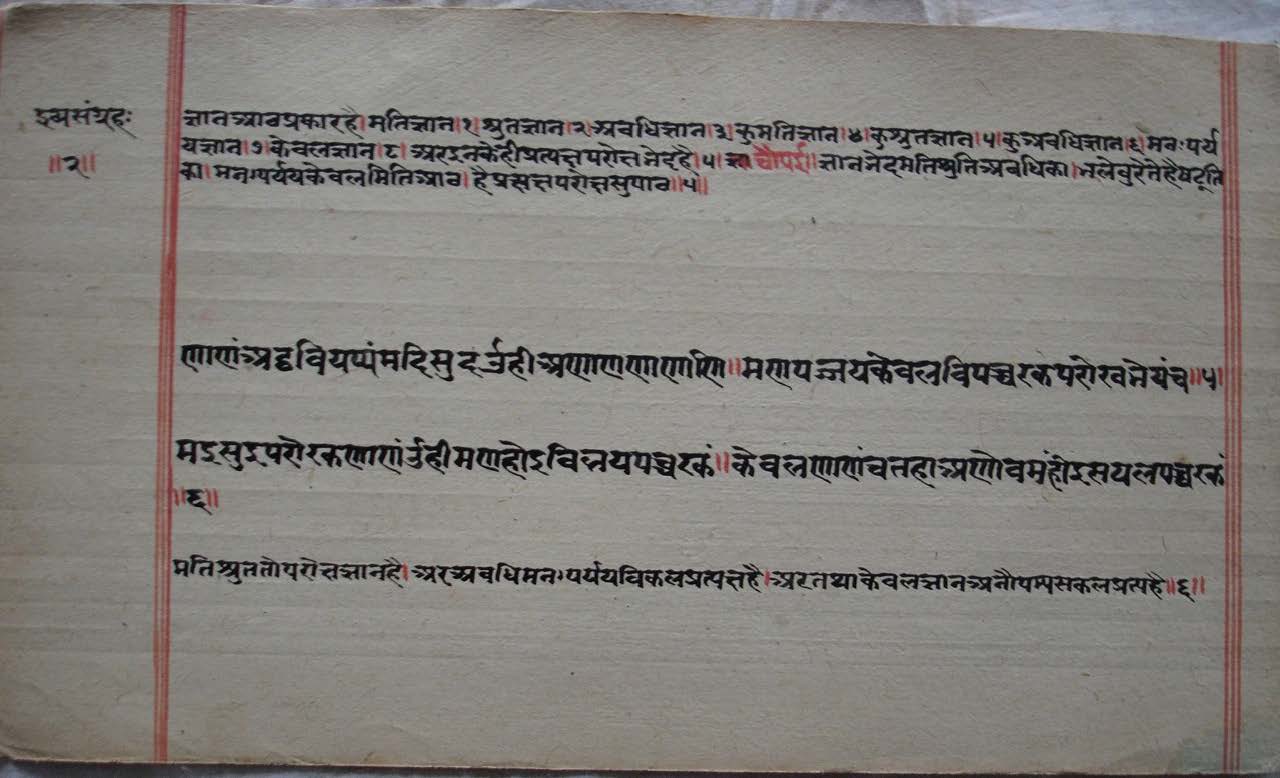 द्रव्यसंग्रहः
॥२॥
ज्ञानआठप्रकारहै।मतिज्ञान।१।श्रुतज्ञान।२।अवधिज्ञान।३।कुमतिज्ञान।४।कुश्रुतज्ञान।५।कुअवधिज्ञान।६।मनःपर्य
यज्ञान।७।केवलज्ञान।८।अरइनकेहीप्रत्यक्षपरोक्षभेदहै।५।चौपई॥ज्ञानभेदमतिश्रुतिअवधिका।भलेबुरेते
का।मनःपर्ययकेवलमिलिआठ।हैप्रत्यक्षपरोक्षसुपाठ॥५॥
णाणंअट्ठवियप्पंमदिसुदओहीअणाणणाणाणि॥मणपज्जयकेवलविपच्चरकपरोखभेयंच॥५।
मइसुइपरोरकणाणंओहीमणहोइविलयपच्चरकं॥केवलणाणंचतहाअणोवमंहोइसयलपच्चरकं
॥६॥
मतिश्रुततोपरोक्षज्ञानहै।अरअवधिमनःपर्ययविकलप्रत्यक्षहै।अरतथाकेवलज्ञानअनौपम्यसकलप्रत्यहै॥६॥